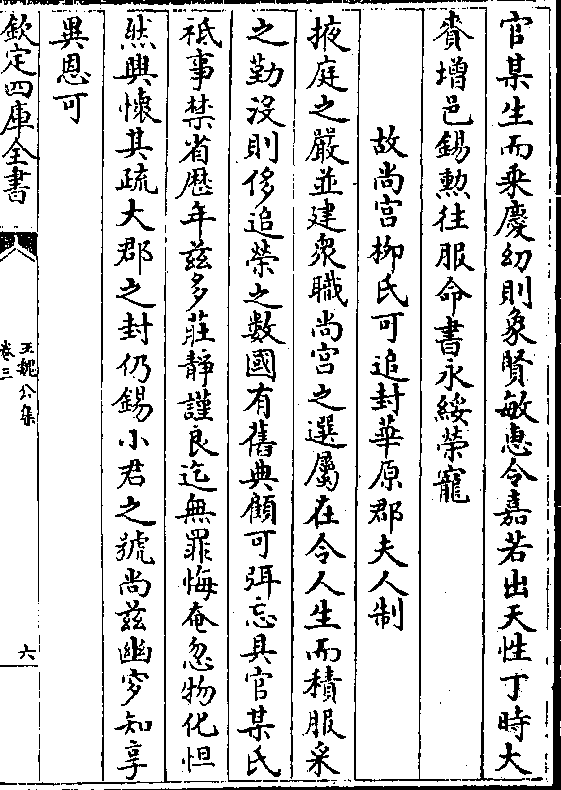 官某生而乘慶幼則象賢敏惠令嘉若出天性丁時大
賚增邑錫勲往服命書永綏榮寵
故尚宫柳氏可追封華原郡夫人制
掖庭之嚴並建衆職尚宫之選屬在令人生而積服采
之勤沒則侈追榮之數國有舊典顧可弭忘具官某氏
祗事禁省歴年兹多莊靜謹良迄無罪悔奄忽物化怛
然興懐其疏大郡之封仍錫小君之號尚兹幽穸知享
異恩可
欽定四庫全書
王魏公集
卷三
六